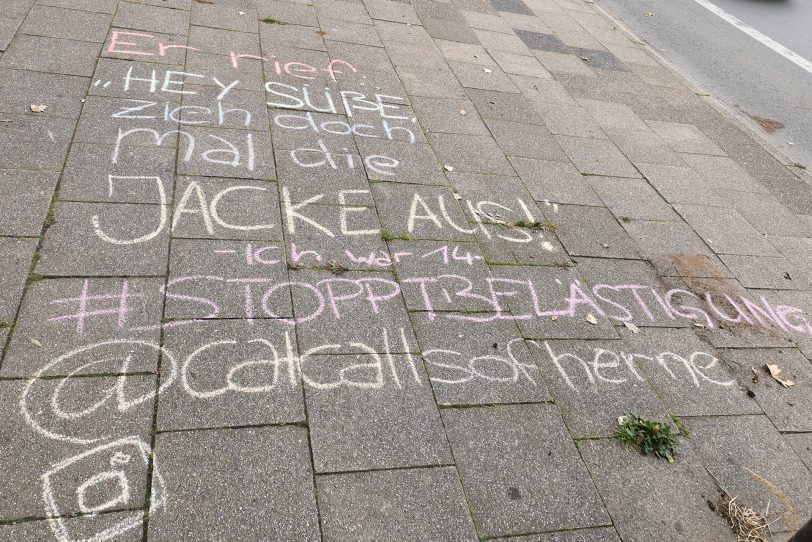 Er rief:
„HEY SÜßE,
zieh doch
mal die
JACKE AUS!"
-Ich war 14-
#STOPPTBELÄSTIGUNG
@catcallsofherne